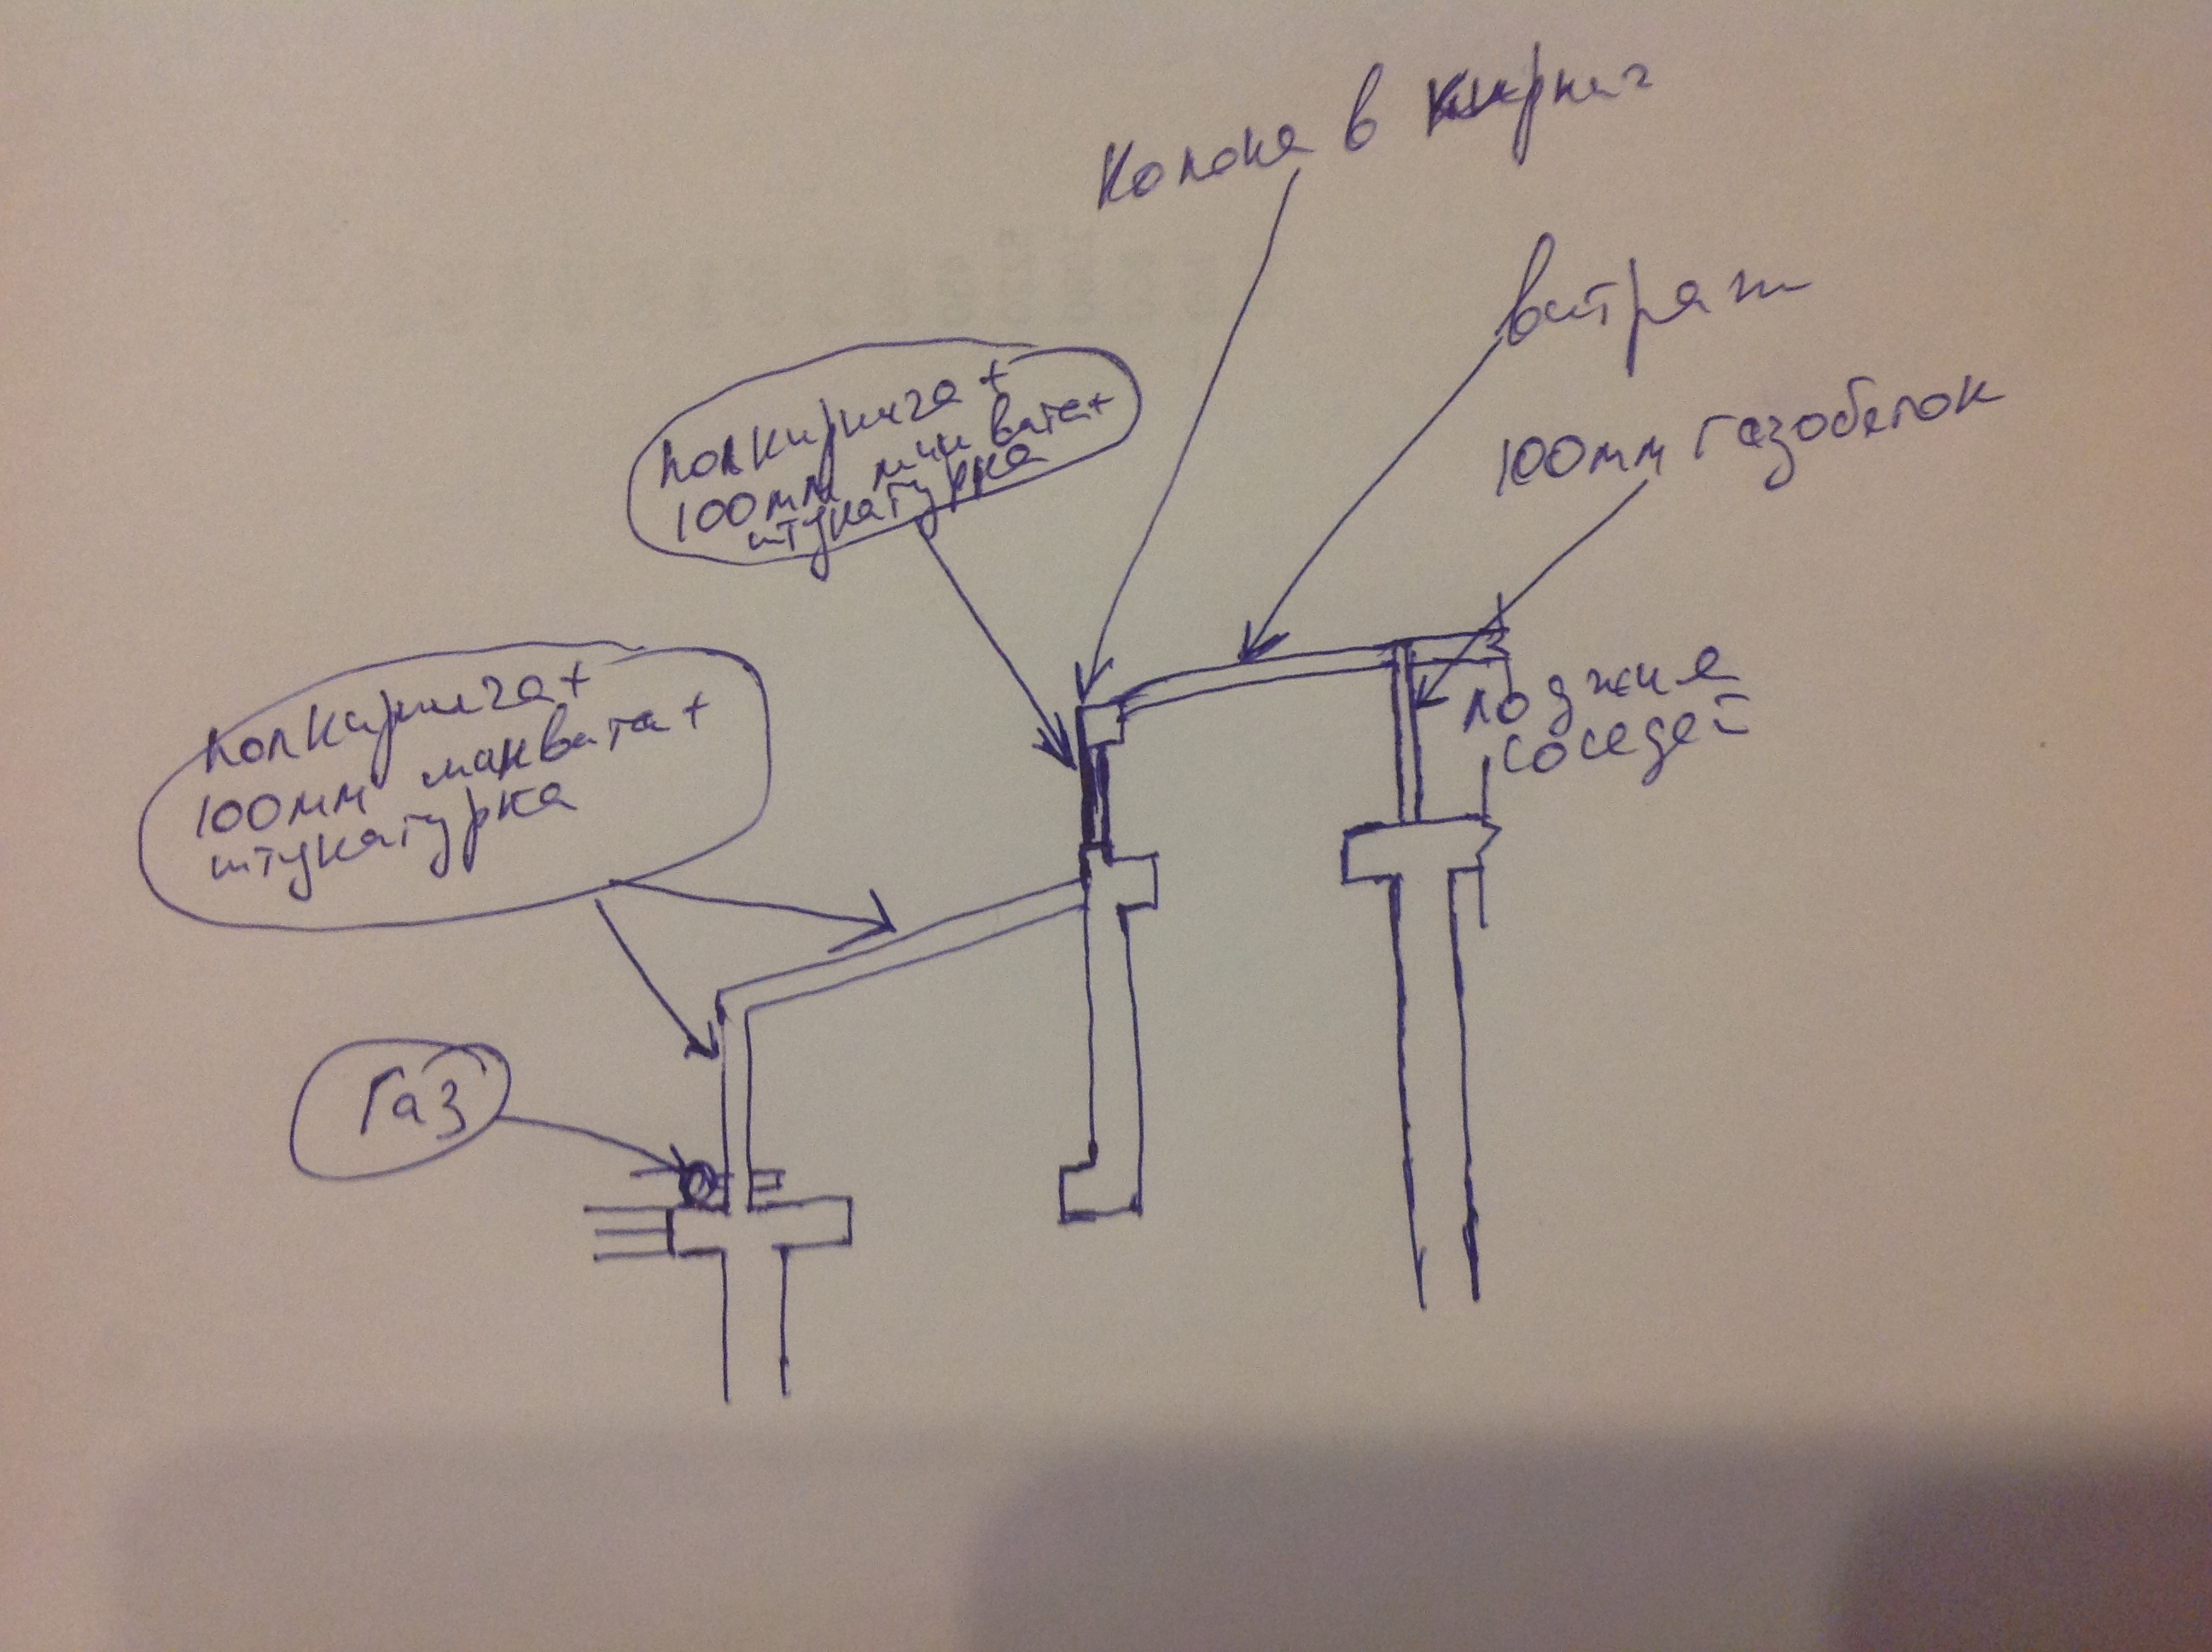 Колона в кирпич
витраж
100мм газобелок
полкирпича+
100мм мин вата+
штукатурка
полкирпича+
100мм минвата+
штукатурка
лоджия
соседей
Газ